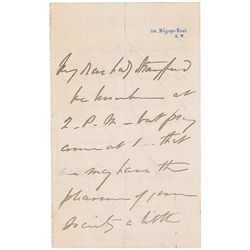 Belgrave Road
S. W.
My dear Lady Strafford
We luncheon at
2 - P. M - but pray
come at 1 - that
we may have the
pleasure of your
society a little